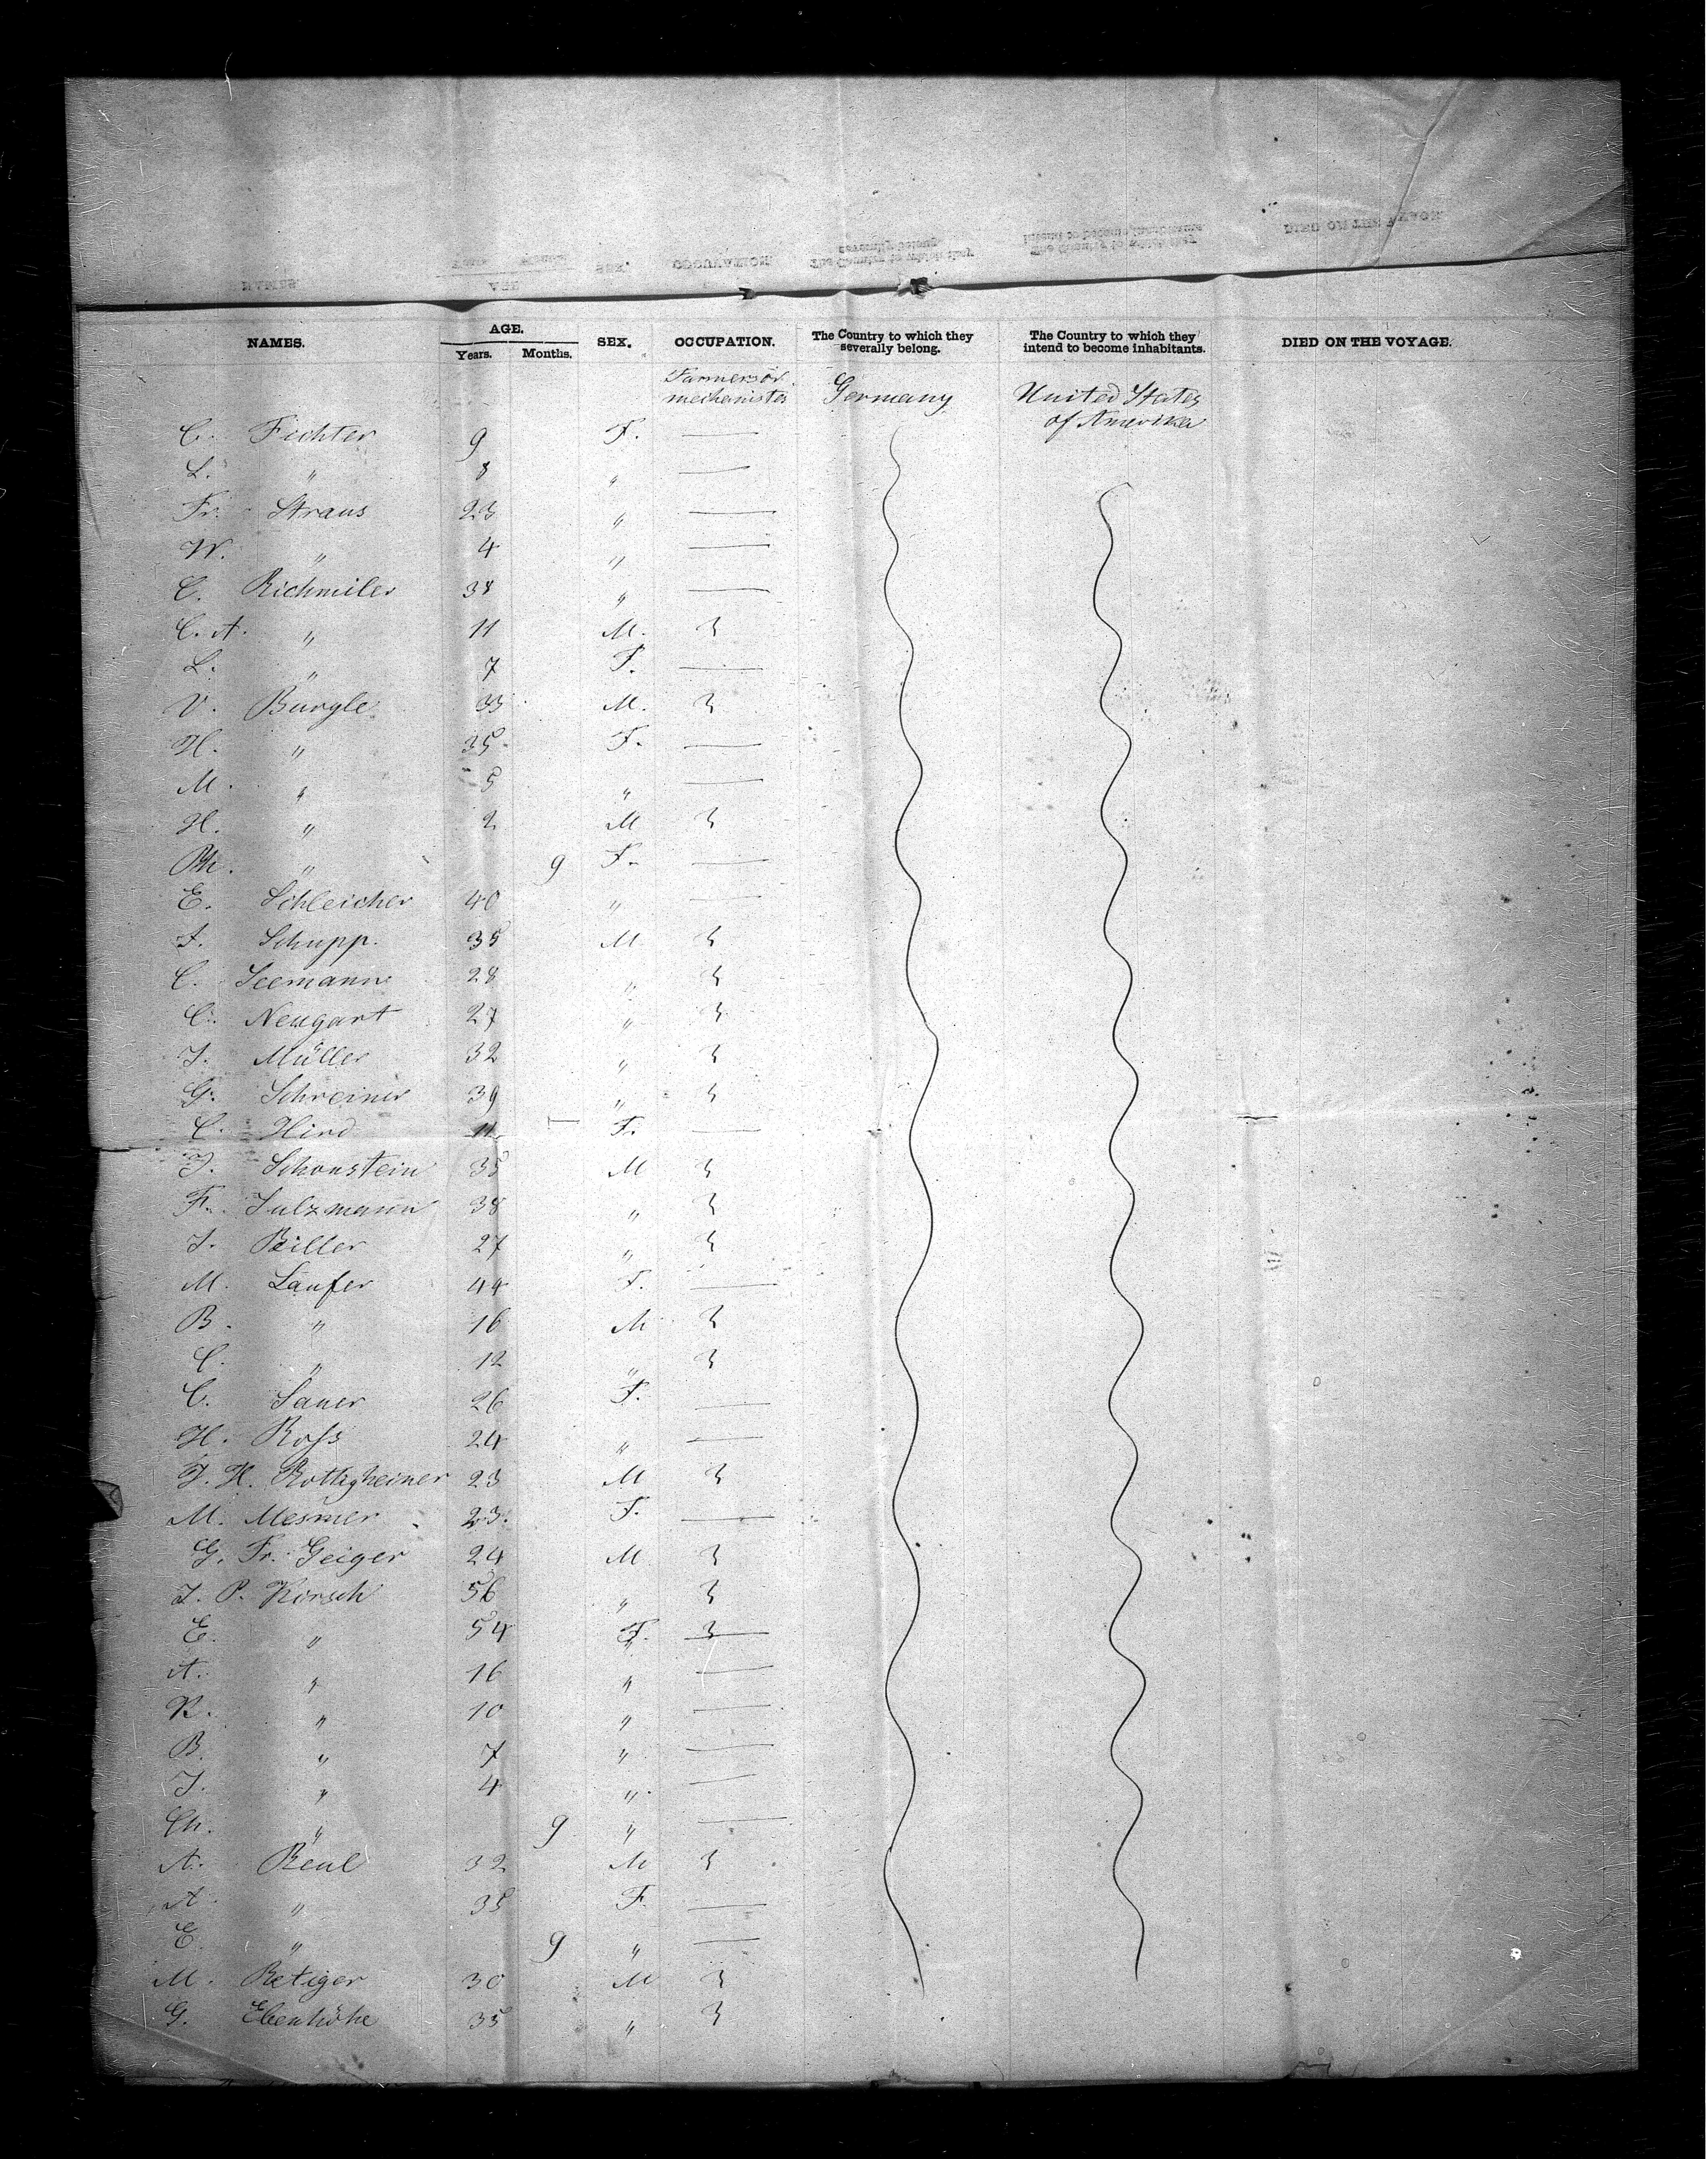 NAMES. AGE. SEX. OCCUPATION. The Country to which they severally belong. The Country to which they intend to become inhabitants. DIED ON THE VOYAGE.
Years. Months.
Farmers or mechanists Germany United States of Amerika
C. Fichter 9 F. —
L. " 8 " —
Fr. Straus 23 " —
W. " 4 " —
C. Richmiler 38 " —
C. A. " 11 M. 3
L. " 7 F. —
V. Burgle 33 M. 3
H. " 35 F. —
M. " 5 " —
H. " 2 M 3
Ph. " 9 F. —
E. Schleicher 40 " —
Schupp. 35 M 3
C. Seemann 28 " 3
C. Neugart 27 " 3
J. Müller 32 " 3
G. Schreiner 39 " 3
C. Hird 11 F. —
J. Schonstein 35 M 3
F. Sulzmann 38 " 3
J. Beiller 27 " 3
M. Laufer 44 F. —
B. " 16 M 3
C. " 12 " 3
C. Sauer 26 F. —
H. Ross 24 " —
J. H. Rottigheimer 23 M 3
M. Mesmer 23. F. —
G. Fr. Geiger 24 M 3
J. P. Korsch 56 " 3
E. " 54 F. —
A. " 16 " —
K. " 10 " —
B. " 7 " —
J. " 4 " —
Ch. " 9 " —
A. Beul 32 M 3
A. " 35 F —
E. " 9 " —
M. Betiger 30 M 3
G. Ebenhöhe 35 " 3